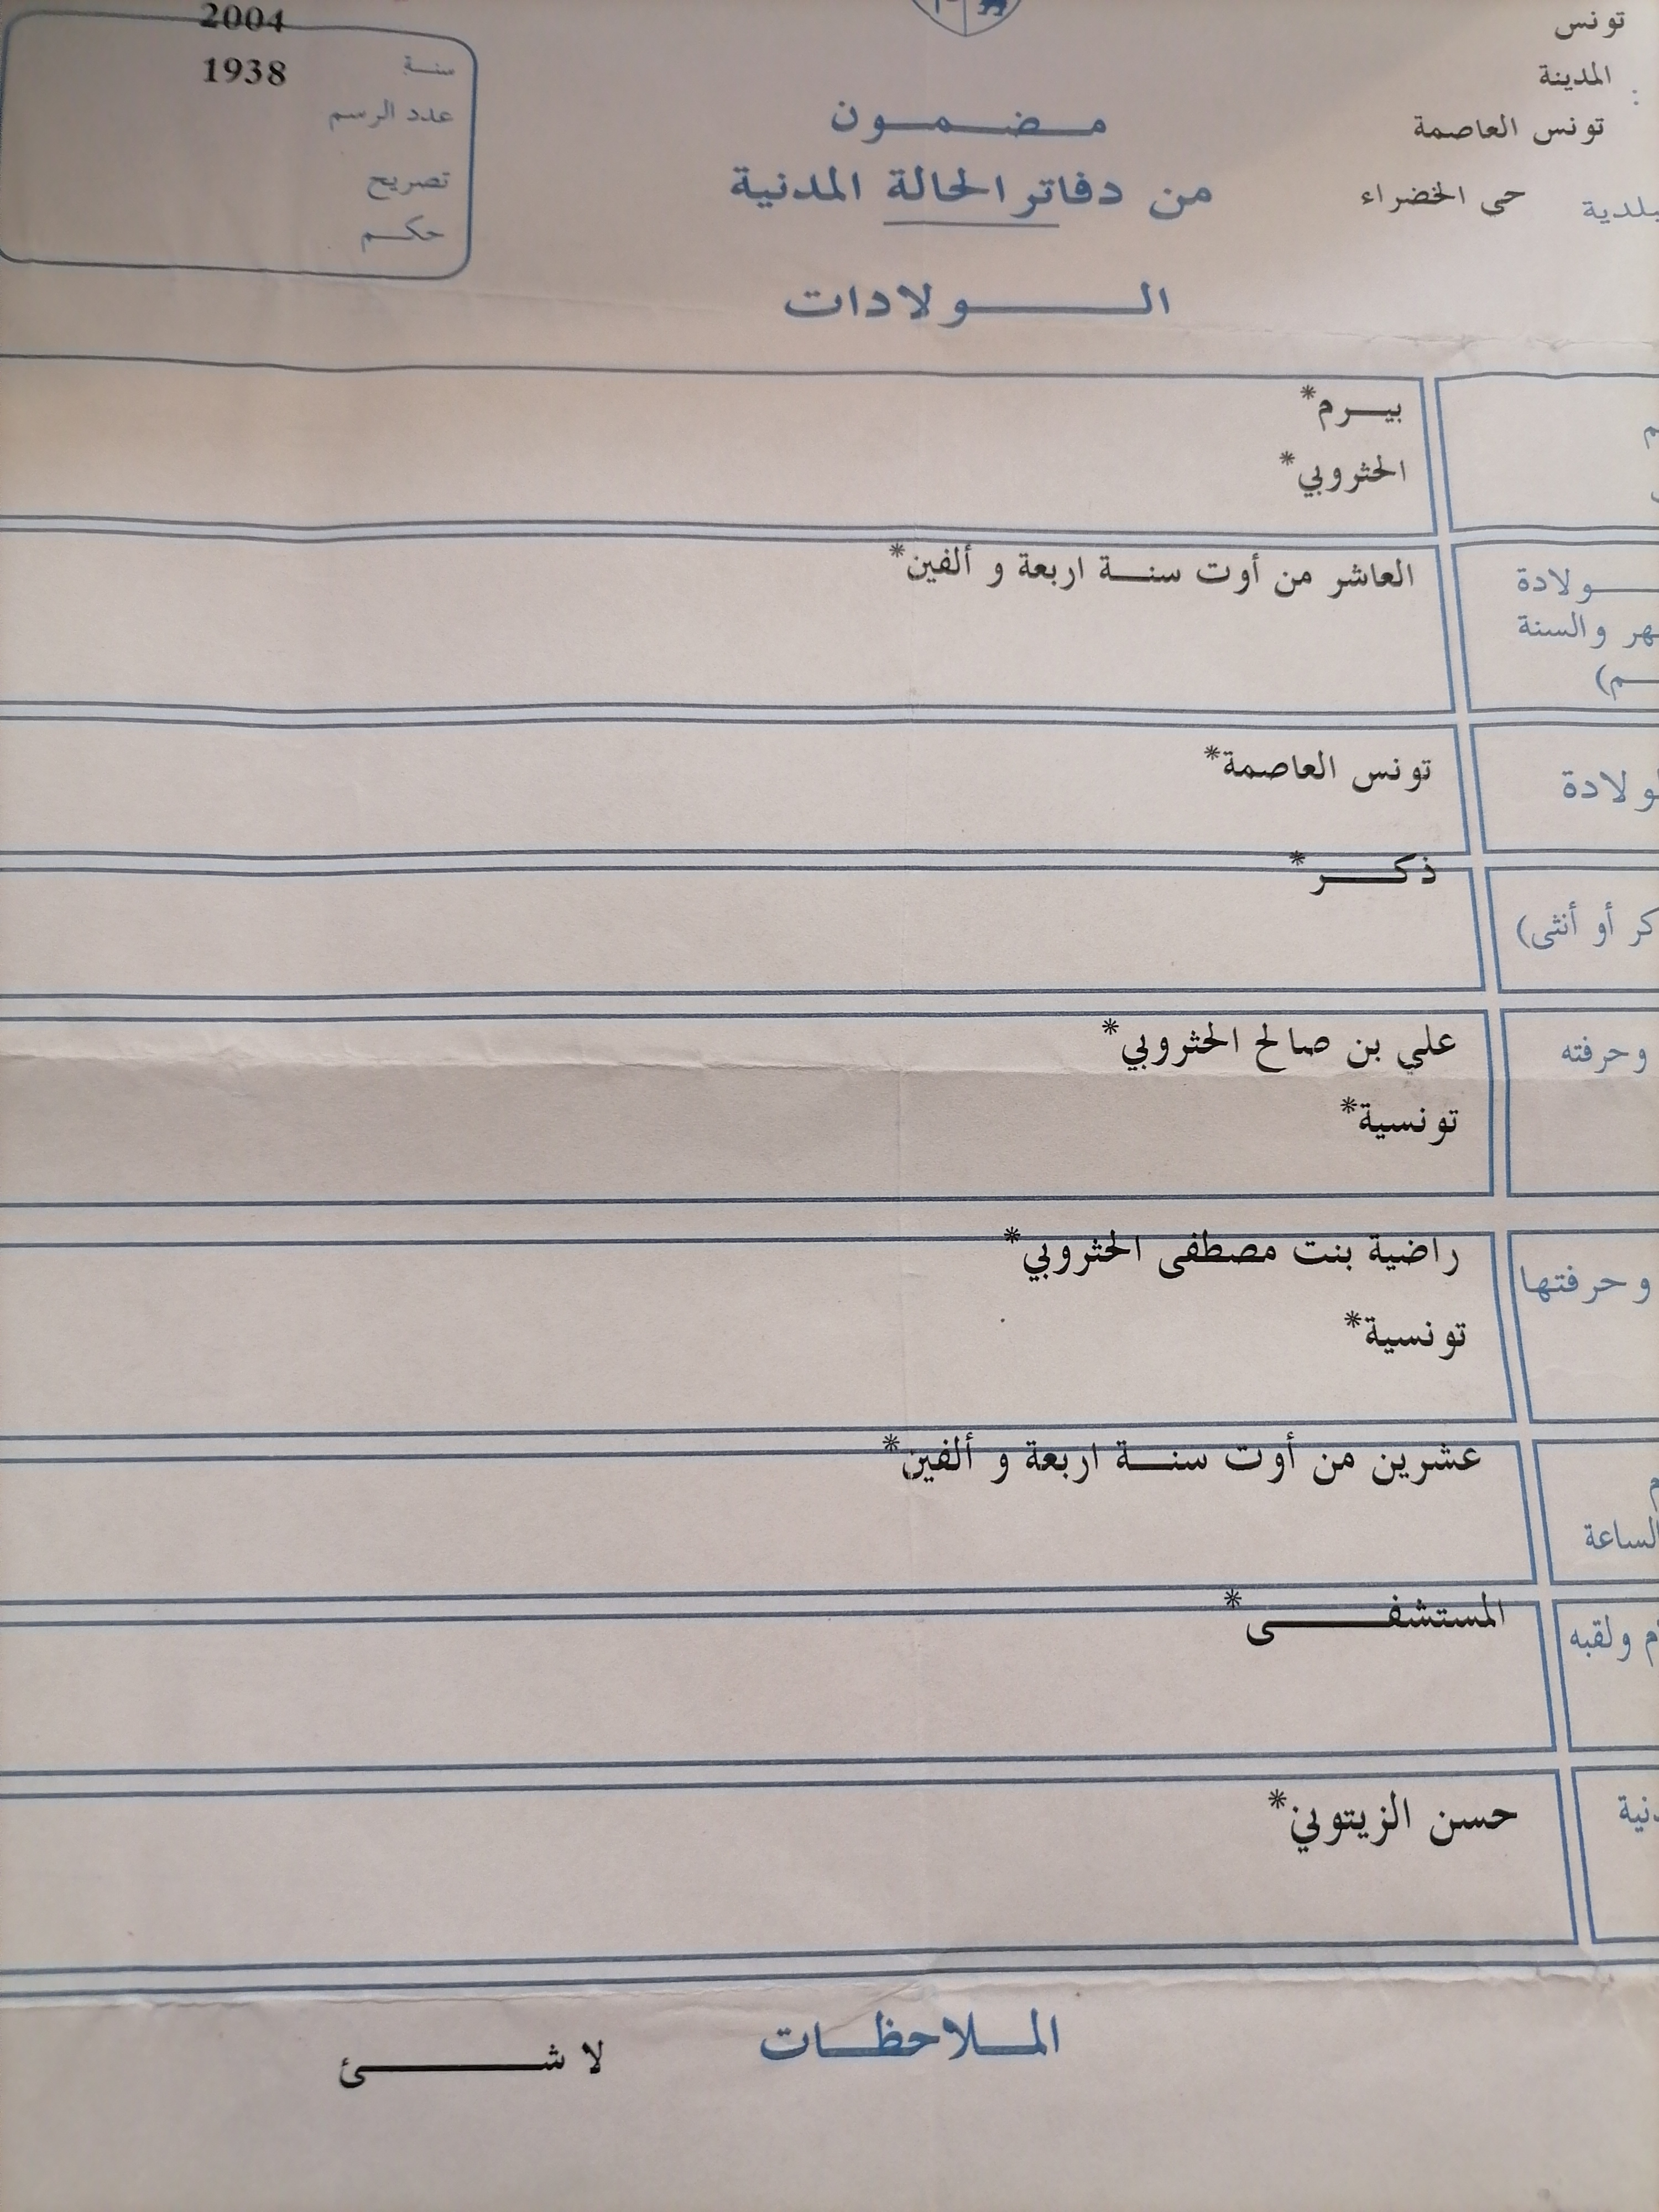 تونس
المدينة :
تونس العاصمة
بلدية حى الخضراء
2004
سنة 1938
عدد الرسم
تصريح
حكم
مضمون
من دفاتر الحالة المدنية
الولادات
بيرم*
الحثروبي*
ولادة العاشر من أوت سنة اربعة و ألفين*
والسنة
تونس العاصمة*
ذكر*
أو أنثى)
وحرفته علي بن صالح الحثروبي*
تونسية*
وحرفتها راضية بنت مصطفى الحثروبي*
تونسية*
عشرين من أوت سنة اربعة و ألفين*
الساعة
المستشفى*
ولقبه
حسن الزيتوني*
الملاحظات
لا شئ